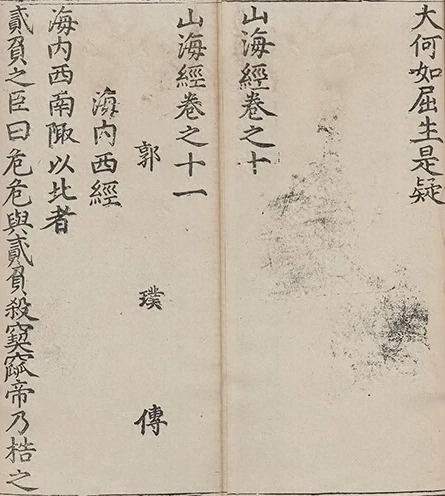 大何如屈生是疑
山海經卷之十
山海經卷之十一
郭璞傳
海內西經
海內西南陬以北者
貳負之臣曰危危與貳負殺窫窳帝乃梏之